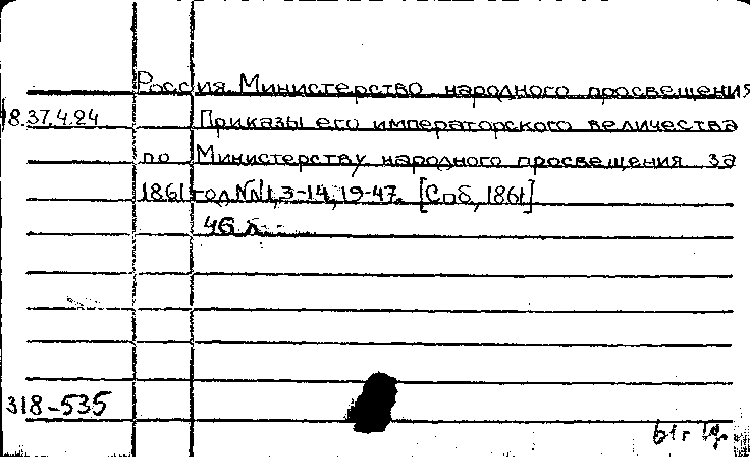 Россия. Министерство народного просвещения
18.37.4.24 Приказы его императорского величества
по Министерству народного просвещения за
1861 год №№1,3-14,19-47. [Спб, 1861]
46 л.
318-535
61г